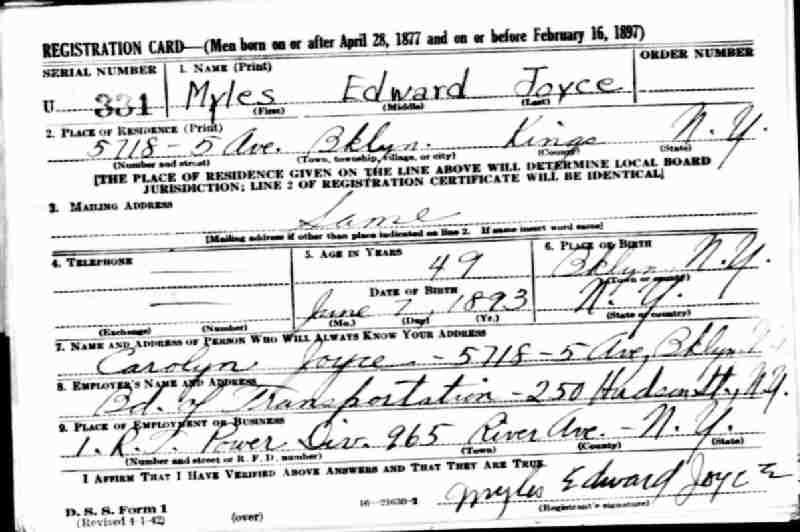 REGISTRATION CARD—(Men born on or after April 28, 1877 and on or before February 16, 1897)
SERIAL NUMBER 1. NAME (Print) ORDER NUMBER
U 331 Myles Edward Joyce
(First) (Middle) (Last)
2. PLACE OF RESIDENCE (Print)
5718 - 5 Ave. Bklyn. Kings N.Y.
(Number and street) (Town, township, village, or city) (County) (State)
[THE PLACE OF RESIDENCE GIVEN ON THE LINE ABOVE WILL DETERMINE LOCAL BOARD
JURISDICTION; LINE 2 OF REGISTRATION CERTIFICATE WILL BE IDENTICAL]
3. MAILING ADDRESS
Same
[Mailing address if other than place indicated on line 2. If same insert word same]
4. TELEPHONE 5. AGE IN YEARS 6. PLACE OF BIRTH
49 Bklyn N.Y.
(Town or county)
DATE OF BIRTH
June 7, 1893 N.Y.
(Exchange) (Number) (Mo.) (Day) (Yr.) (State or country)
7. NAME AND ADDRESS OF PERSON WHO WILL ALWAYS KNOW YOUR ADDRESS
Carolyn Joyce - 5718 - 5 Ave, Bklyn
8. EMPLOYER'S NAME AND ADDRESS
Bd. of Transportation - 250 Hudson St., N.Y.
9. PLACE OF EMPLOYMENT OR BUSINESS
I.R.T. Power Div. 965 River Ave. - N.Y.
(Number and street or R. F. D. number) (Town) (County) (State)
I AFFIRM THAT I HAVE VERIFIED ABOVE ANSWERS AND THAT THEY ARE TRUE.
Myles Edward Joyce
D. S. S. Form 1 16—21630-2 (Registrant's signature)
(Revised 4-1-42) (over)